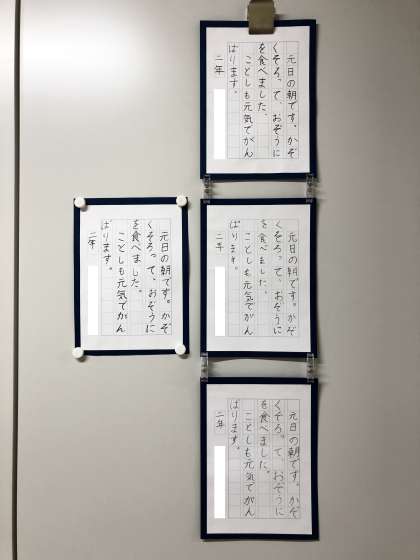 元日の朝です。かぞ
くそろって、おぞうに
を食べました。
ことしも元気でがん
ばります。
二年
元日の朝です。かぞ
くそろって、おぞうに
を食べました。
ことしも元気でがん
ばります。
二年
元日の朝です。かぞ
くそろって、おぞうに
を食べました。
ことしも元気でがん
ばります。
二年
元日の朝です。かぞ
くそろって、おぞうに
を食べました。
ことしも元気でがん
ばります。
二年